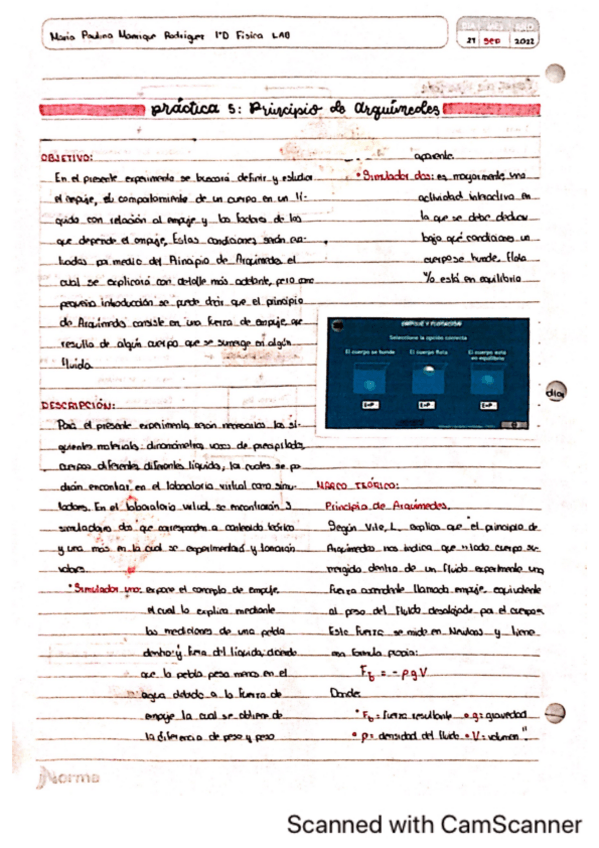 Maria Paulina Manrique Rodriguez 1°D Física LAB
21 SEP 2022
práctica 5: Principio de Arquímedes
OBJETIVO:
En el presente experimento se buscará definir y estudiar
el empuje, el comportamiento de un cuerpo en un lí-
quido con relación al empuje y los factores de los
que depende el empuje. Estas condiciones serán
por medio del Principio de Arquímedes el
cual se explicará con detalle más adelante, pero como
pequeña introducción se puede decir que el principio
de Arquímedes consiste en una fuerza de empuje que
resulta de algún cuerpo que se sumerge en algún
fluido.
DESCRIPCIÓN:
Para el presente experimento serán necesarios los si-
guientes materiales: dinamómetros, vasos de precipitado,
cuerpos diferentes, diferentes líquidos, los cuales se po-
drán encontrar en el laboratorio virtual como simu-
ladores. En el laboratorio virtual se encontrarán 3
simuladores dos que corresponden a contenido teórico
y uno más en la cual se experimentará y tomarán
valores.
• Simulador uno: expone el concepto de empuje,
el cual lo explica mediante
las mediciones de una piedra
dentro y fuera del líquido, diciendo
que la piedra pesa menos en el
agua debido a la fuerza de
empuje la cual se obtiene de
la diferencia de peso y peso
aparente.
• Simulador dos: es mayormente una
actividad interactiva en
la que se debe deducir
bajo qué condiciones un
cuerpo se hunde, flota
y/o está en equilibrio
EMPUJE Y FLOTACIÓN
Seleccione la opción correcta
El cuerpo se hunde El cuerpo flota El cuerpo está en equilibrio
E<P E>P E=P
MARCO TEÓRICO:
Principio de Arquímedes.
Según Vite, L. explica que "el principio de
Arquímedes nos indica que "todo cuerpo su-
mergido dentro de un fluido experimenta una
fuerza ascendente llamada empuje, equivalente
al peso del fluido desalojado por el cuerpo".
Esta fuerza se mide en Newtons y tiene
una fórmula propia:
Fb = -ρgV
Donde
• Fb = fuerza resultante • g = gravedad
• ρ = densidad del fluido • V = volumen"
Norma
Scanned with CamScanner